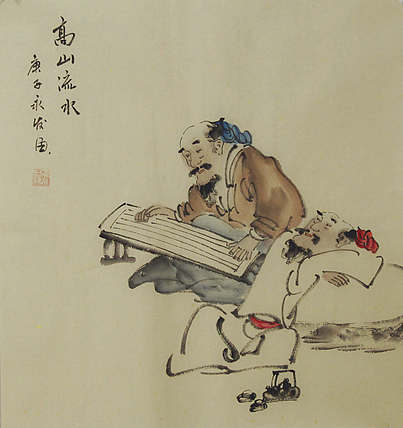 高山流水
庚子永发画